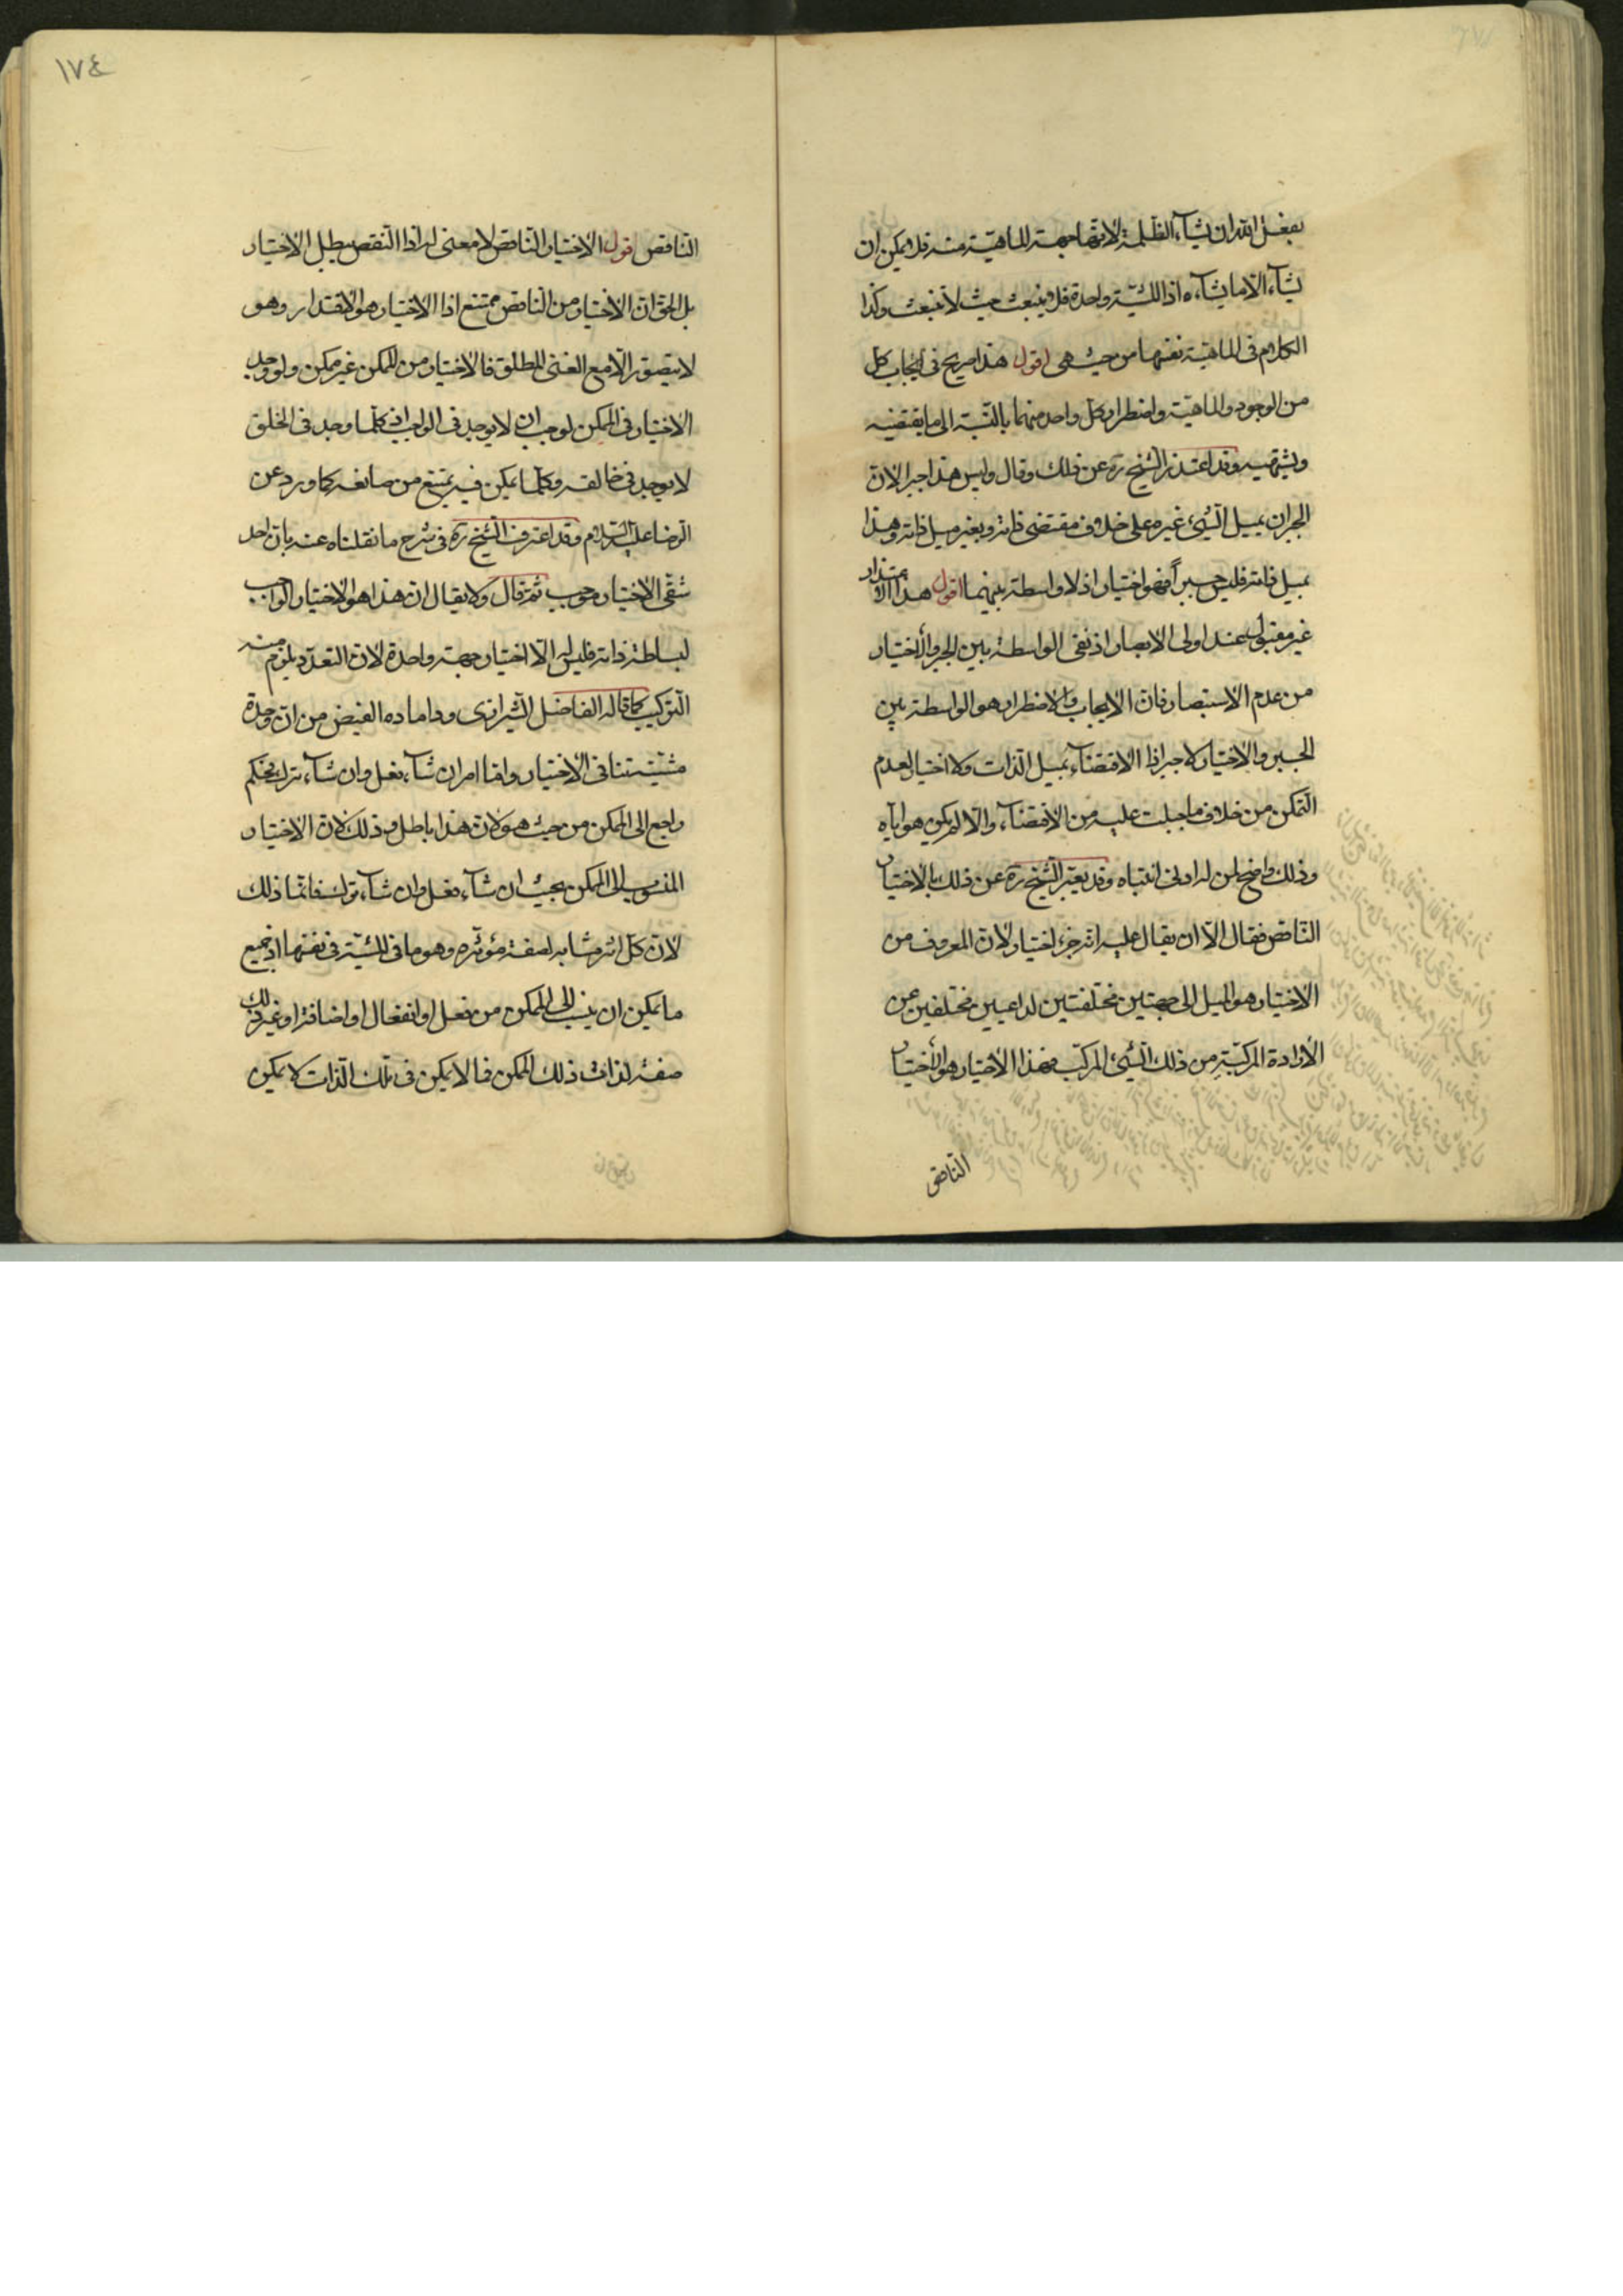 بفعل الله ان يشآء الظلمة لانها جهة الماهية منه فلا يمكن ان
يشآء الا ما يشآءه اذ المشية واحدة فلا ينبعث حيث لا تنبعث وكذا
الكلام فى الماهية نفسها من حيث هى اقول هذا صريح فى ايجاب كل
من الوجود والماهية واضطرار كل واحد منهما بالنسبة الى ما يقتضيه
ويشتهيه وقد اعتذر الشيخ ره عن ذلك وقال وليس هذا جبرا لان
الجبر ان يميل الشئ غيره على خلاف مقتضى ذاته وبغير ميل ذاته وهذا
يميل ذاته فليس جبراً فهو اختيار اذ لا واسطة بينهما اقول هذا الاعتذار
غير مقبول عند اولى الابصار اذ نفى الواسطة بين الجبر والاختيار
من عدم الاستبصار فان الايجاب والاضطرار هو الواسطة بين
الجبر والاختيار لا جبر اذ الاقتضآء بميل الذات ولا اختيار لعدم
التمكن من خلاف ما جبلت عليه من الاقتضآء والا لم يكن هو اياه
وذلك واضح لمن له ادنى انتباه وقد يعبر الشيخ ره عن ذلك بالاختيار
الناقص فقال الا ان يقال عليه انه جزء اختيار لان المعروف من
الاختيار هو الميل الى جهتين مختلفتين لداعيين مختلفين عن
الارادة المركبة من ذلك الشئ المركب فهذا الاختيار هو الاختيار
الناقص
١٧٤
الناقص اقول الاختيار الناقص لا معنى له اذ النقص يبطل الاختيار
بل الحق ان الاختيار من الناقص ممتنع اذ الاختيار هو الاقتدار وهو
لا يتصور الا مع الغنى المطلق فالاختيار من الممكن غير ممكن ولو وجد
الاختيار فى الممكن لوجب ان لا يوجد فى الواجب اذ كلما وجد فى الخلق
لا يوجد فى خالقه وكلما يمكن فيه يمتنع من صانعه كما ورد عن
الرضا عليه السلام وقد اعترف الشيخ ره فى شرح ما نقلناه عنه بان احد
شقى الاختيار وجوب ثم قال ولا يقال ان هذا هو الاختيار الواجب
لبساطة ذاته فليس له الا اختيار جهة واحدة لان التعدد يلزم منه
التركيب كما قاله الفاضل الشيرازى وداماده الفيض من ان وحدة
مشيته تنافى الاختيار واما امر ان شآء فعل وان شآء ترك فحكم
راجع الى الممكن من حيث هو لان هذا باطل وذلك لان الاختيار
المنسوب الى الممكن بحيث ان شآء فعل وان شآء ترك فانما ذلك
لان كل اثر مشابه لصفة مؤثره وهو ما فى المشية فى نفسها اذ جميع
ما يمكن ان ينسب الى الممكن من فعل او انفعال او اضافة او غير ذلك
صفة لذات ذلك الممكن فما لا يمكن فى تلك الذات لا يمكن